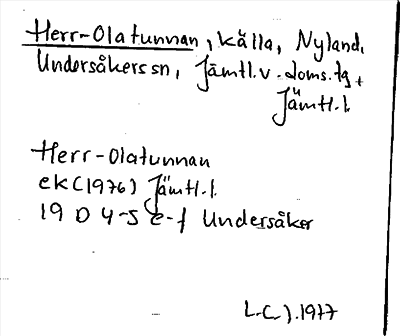 Herr-Olatunnan, källa, Nyland,
Undersåkers sn, Jämtl. v. doms. tg,
Jämtl. l.
Herr-Olatunnan
ek (1976) Jämtl. l.
19 D 4-5 e-f Undersåker
1977